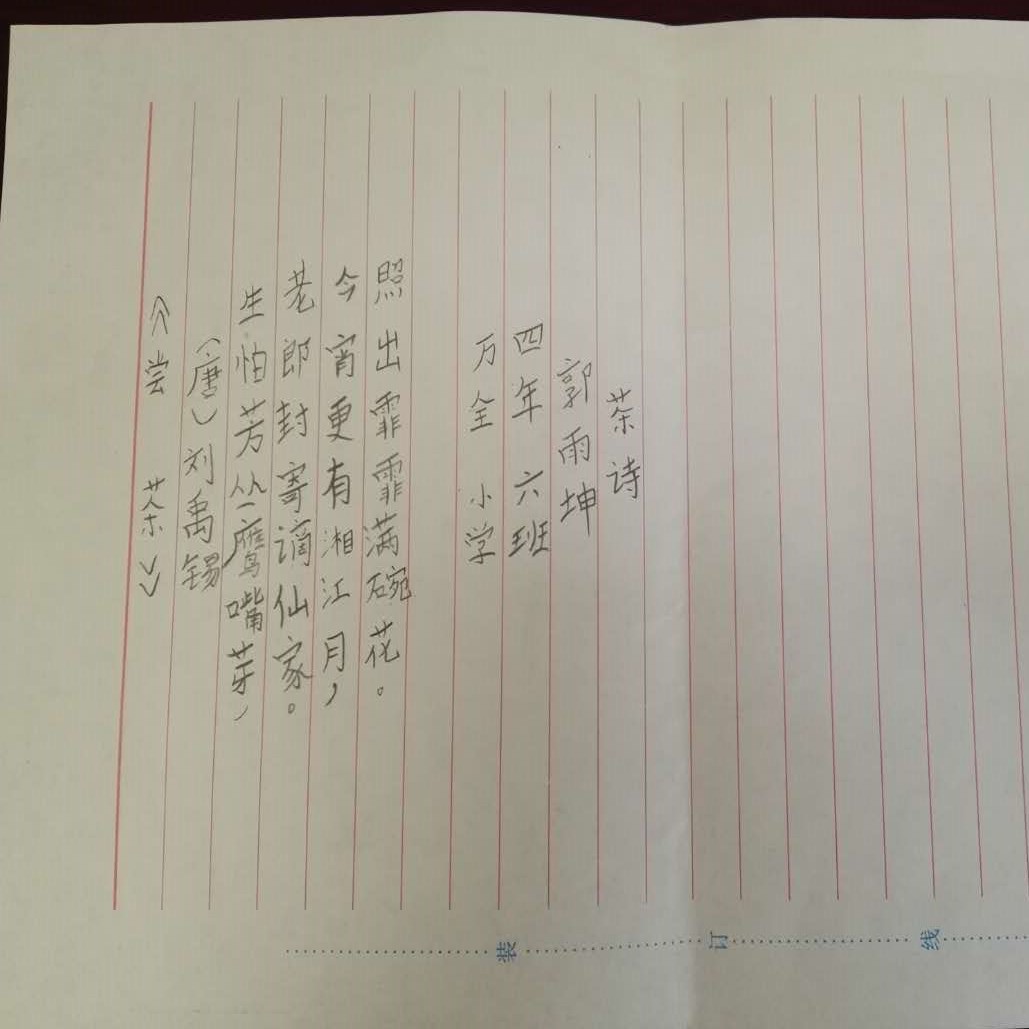 《尝茶》
(唐)刘禹锡
生怕芳丛鹰嘴芽,
老郎封寄谪仙家。
今宵更有湘江月,
照出霏霏满碗花。
万全小学
四年六班
郭雨坤
茶诗
装订线